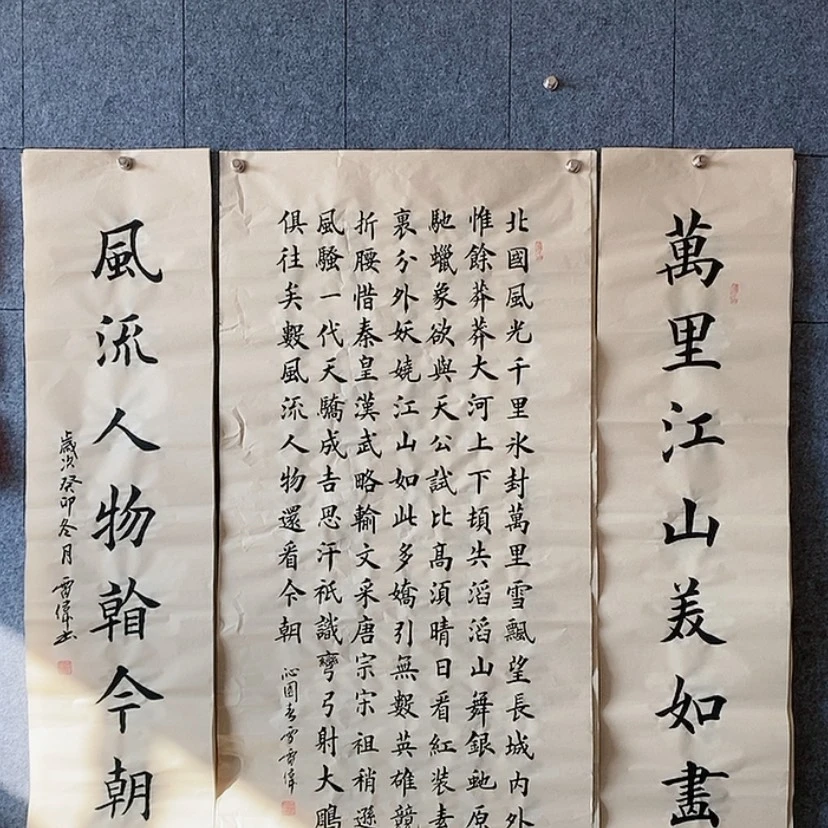 萬里江山美如畫
北國風光千里氷封萬里雪飄望長城内外
惟餘莽莽大河上下頓失滔滔山舞銀虵原
馳蠟象欲與天公試比高須晴日看紅装素
裏分外妖嬈江山如此多嬌引無數英雄競
折腰惜秦皇漢武略輸文采唐宗宋祖稍遜
風騷一代天驕成吉思汗祇識彎弓射大鵰
俱往矣數風流人物還看今朝
沁園春雪雷偉
風流人物今朝
歲次癸卯冬月雷偉書